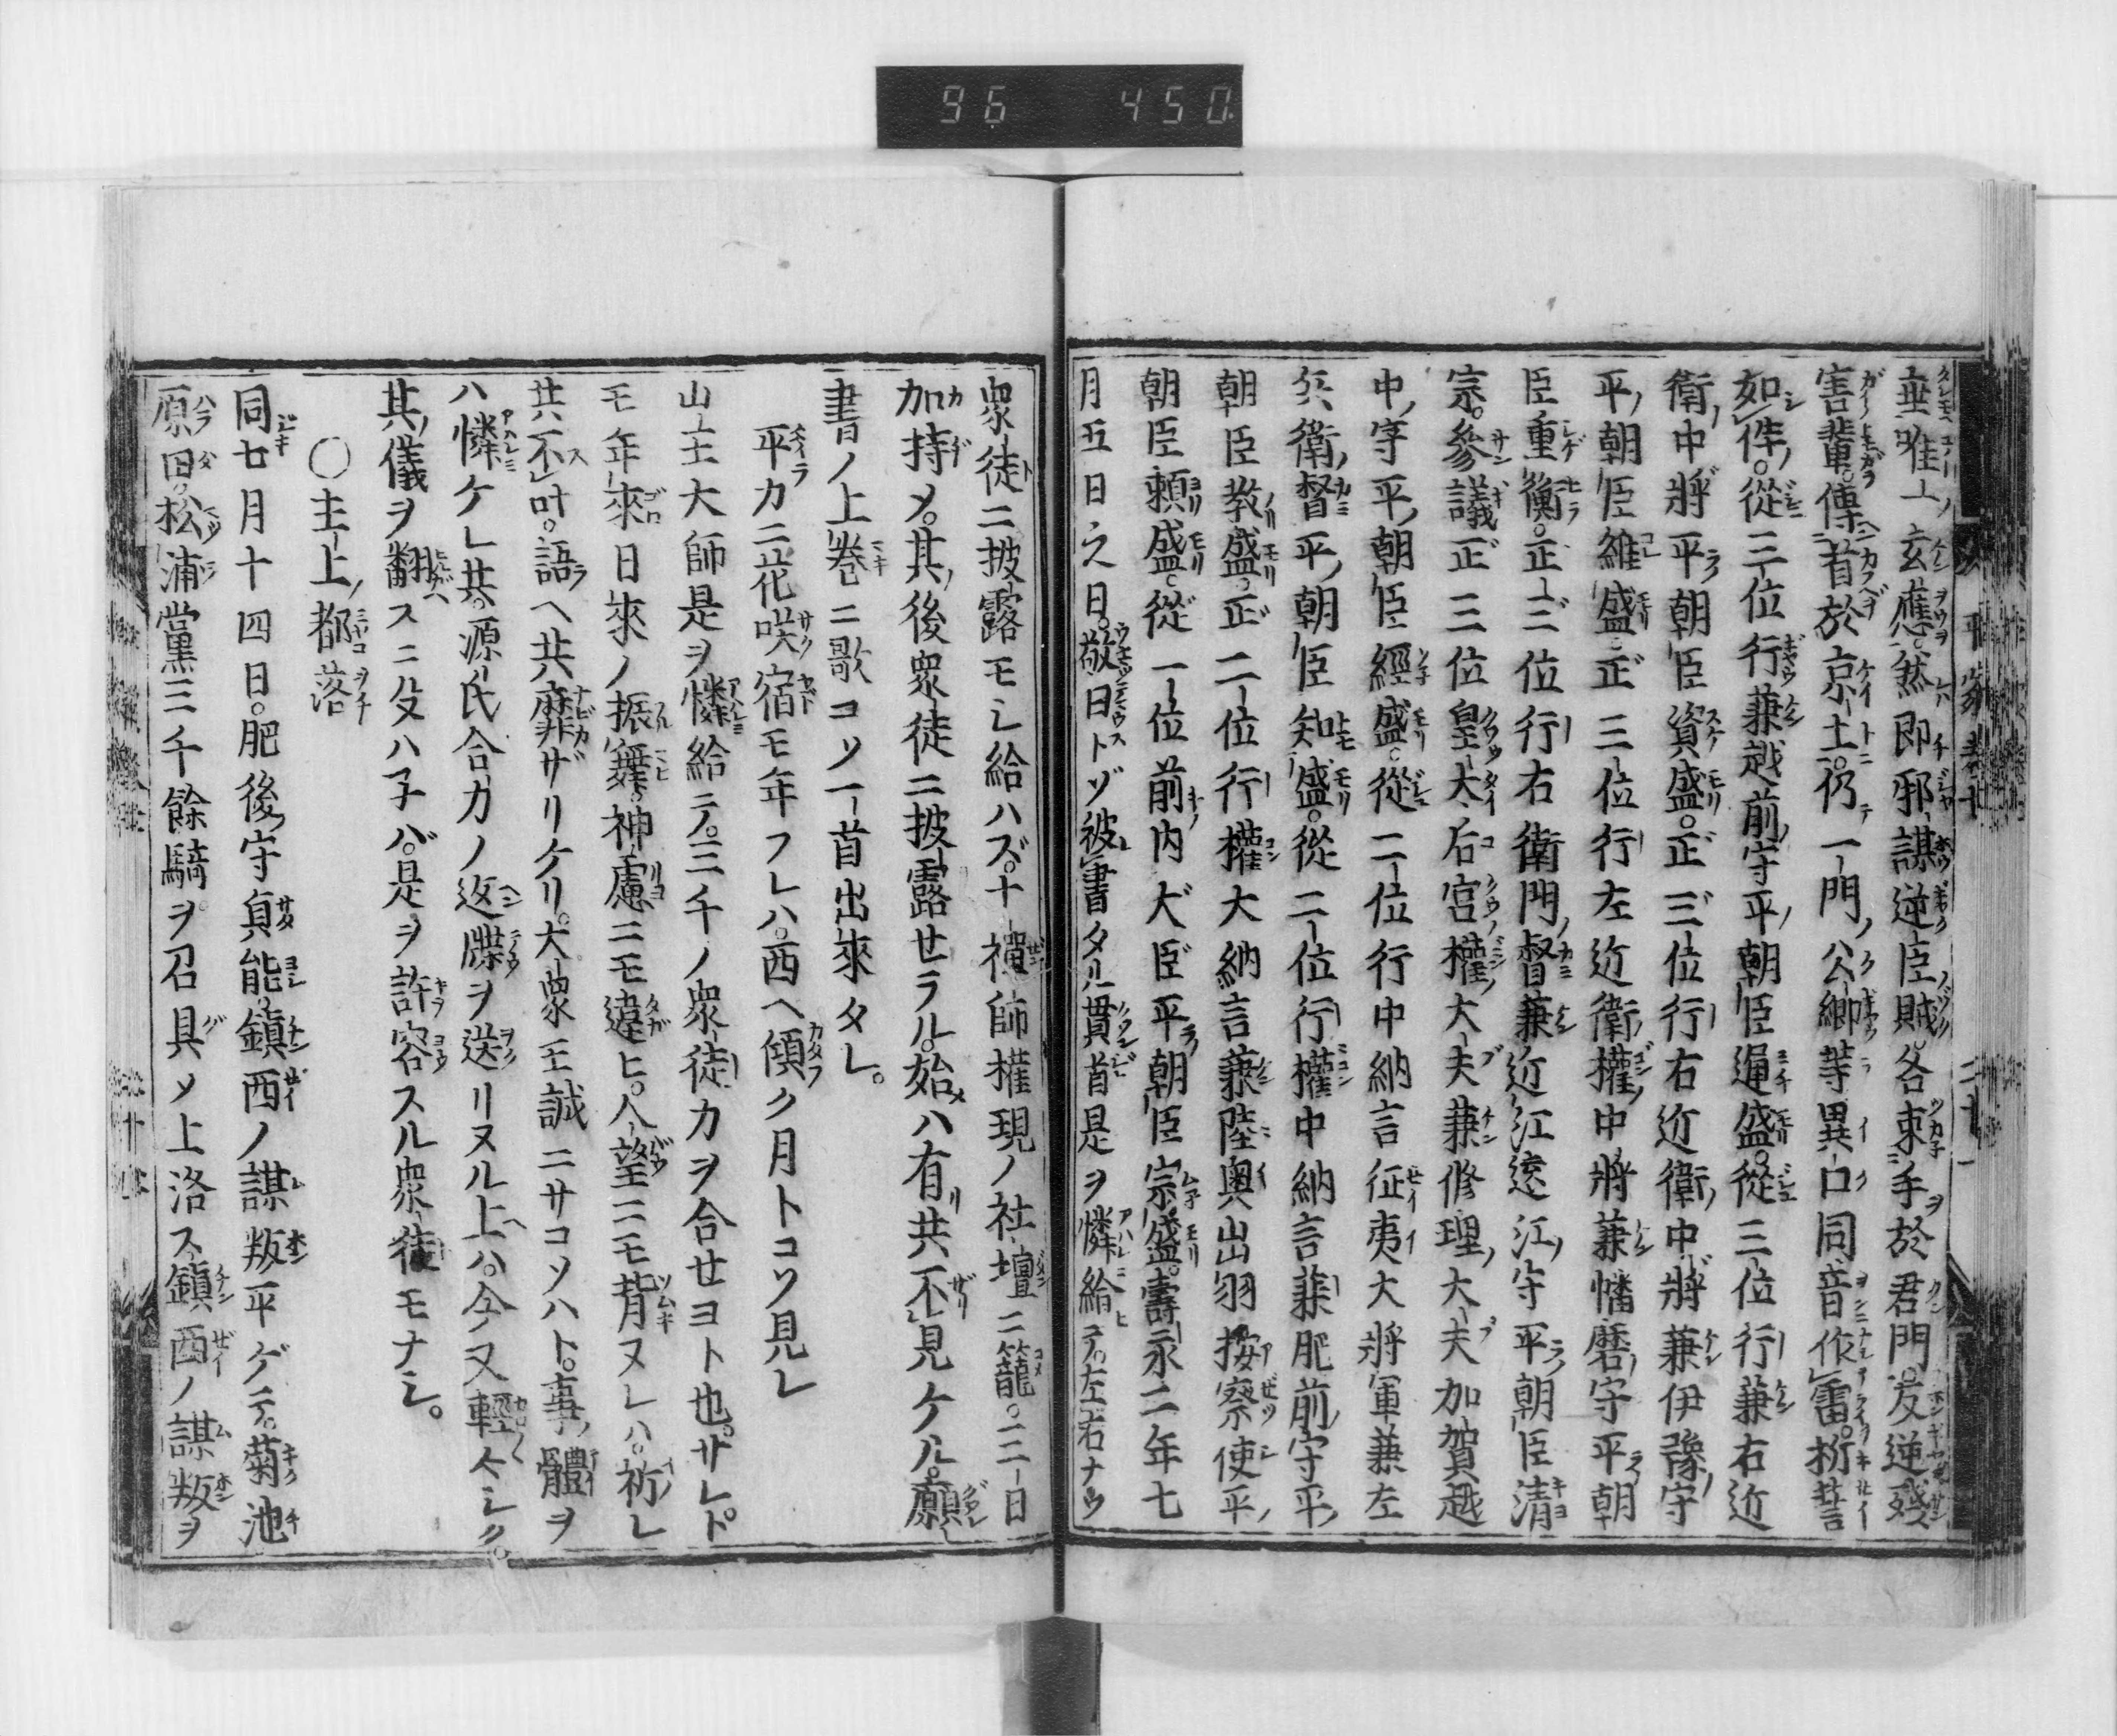 96 450
垂唯一玄應。然即邪謀逆臣賊。各束手於君門。反逆殘
害輩。傳首於京土。仍一門ノ公卿等異口同音作雷。祈誓
如件。從三位行兼越前守平ノ朝臣通盛。從三位行兼右近
衛ノ中將平朝臣資盛。正三位行右近衛ノ中將兼伊豫ノ守
平ノ朝臣維盛。正三位行左近衛ノ權中將兼幡磨ノ守平朝
臣重衡。正三位行右衛門ノ督兼近江遠江ノ守平朝臣清
宗。參議正三位皇太后宮權大夫兼修理ノ大夫加賀越
中ノ守平ノ朝臣經盛。從二位行中納言征夷大將軍兼左
兵衛ノ督平ノ朝臣知盛。從二位行權中納言兼肥前ノ守平ノ
朝臣教盛。正二位行權大納言兼陸奧出羽按察使平ノ
朝臣頼盛。從一位前内大臣平朝臣宗盛。壽永二年七
月五日之日。敬日トゾ被書タル貫首是ヲ憐給ヒテ。左右ナウ
衆徒ニ披露モシ給ハズ。十禪師權現ノ社壇ニ籠。三日
加持メ。其ノ後衆徒ニ披露セラル。始ハ有共不見ケル。願
書ノ上巻ニ歌コソ一首出來タレ。
平カニ花咲宿モ年フレハ。西ヘ傾ク月トコソ見レ
山王大師是ヲ憐給テ。三千ノ衆徒力ヲ合セヨト也。サレド
モ年來日來ノ振舞。神慮ニモ違ヒ。人望ニモ背ヌレハ。祈レ
共不叶。語ヘ共靡ザリケリ。大衆モ誠ニサコソハト。事ノ體ヲ
ハ憐ケレ共。源氏合力ノ返牒ヲ送リヌル上ハ。今又輕々シク。
其ノ儀ヲ翻スニ及ハ子バ。是ヲ許容スル衆徒モナシ。
〇主上ノ都落
同七月十四日。肥後ノ守貞能。鎮西ノ謀叛平ゲテ。菊池
原田。松浦黨三千餘騎ヲ召具メ上洛ス。鎮西ノ謀叛ヲ